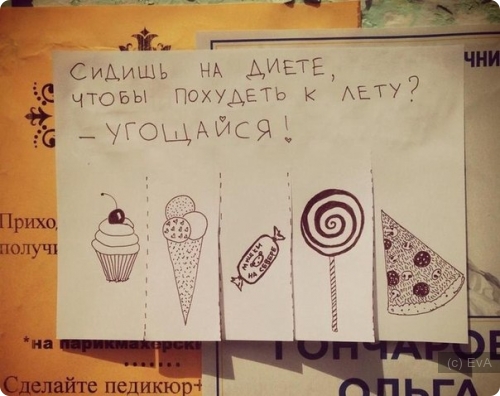 ЧНИ
СИДИШЬ НА ДИЕТЕ,
ЧТОБЫ ПОХУДЕТЬ К ЛЕТУ?
– УГОЩАЙСЯ!
МИШКИ НА СЕВЕРЕ
Прихо
получи
*на парикмахерски
Сделайте педикюр+
ГОНЧАРОВ
ОЛЬГА
(c) EvA